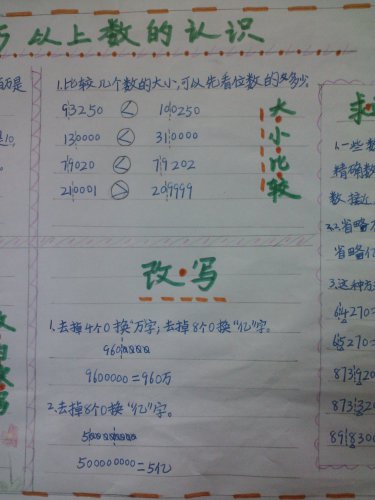 以上数的认识
1.比较几个数的大小,可以先看位数的多少。
93250 < 100250
130000 < 310000
79020 > 79202
210001 > 209999
大小比较
改·写
1.去掉4个0换“万”字;去掉8个0换“亿”字。
9600000
9600000=960万
2.去掉8个0换“亿”字。
500000000
500000000=5亿
1.一些数
精确数
数接近
2.省略万
省略亿
3.这种方
64270=
65270=
873920
873320
8918300